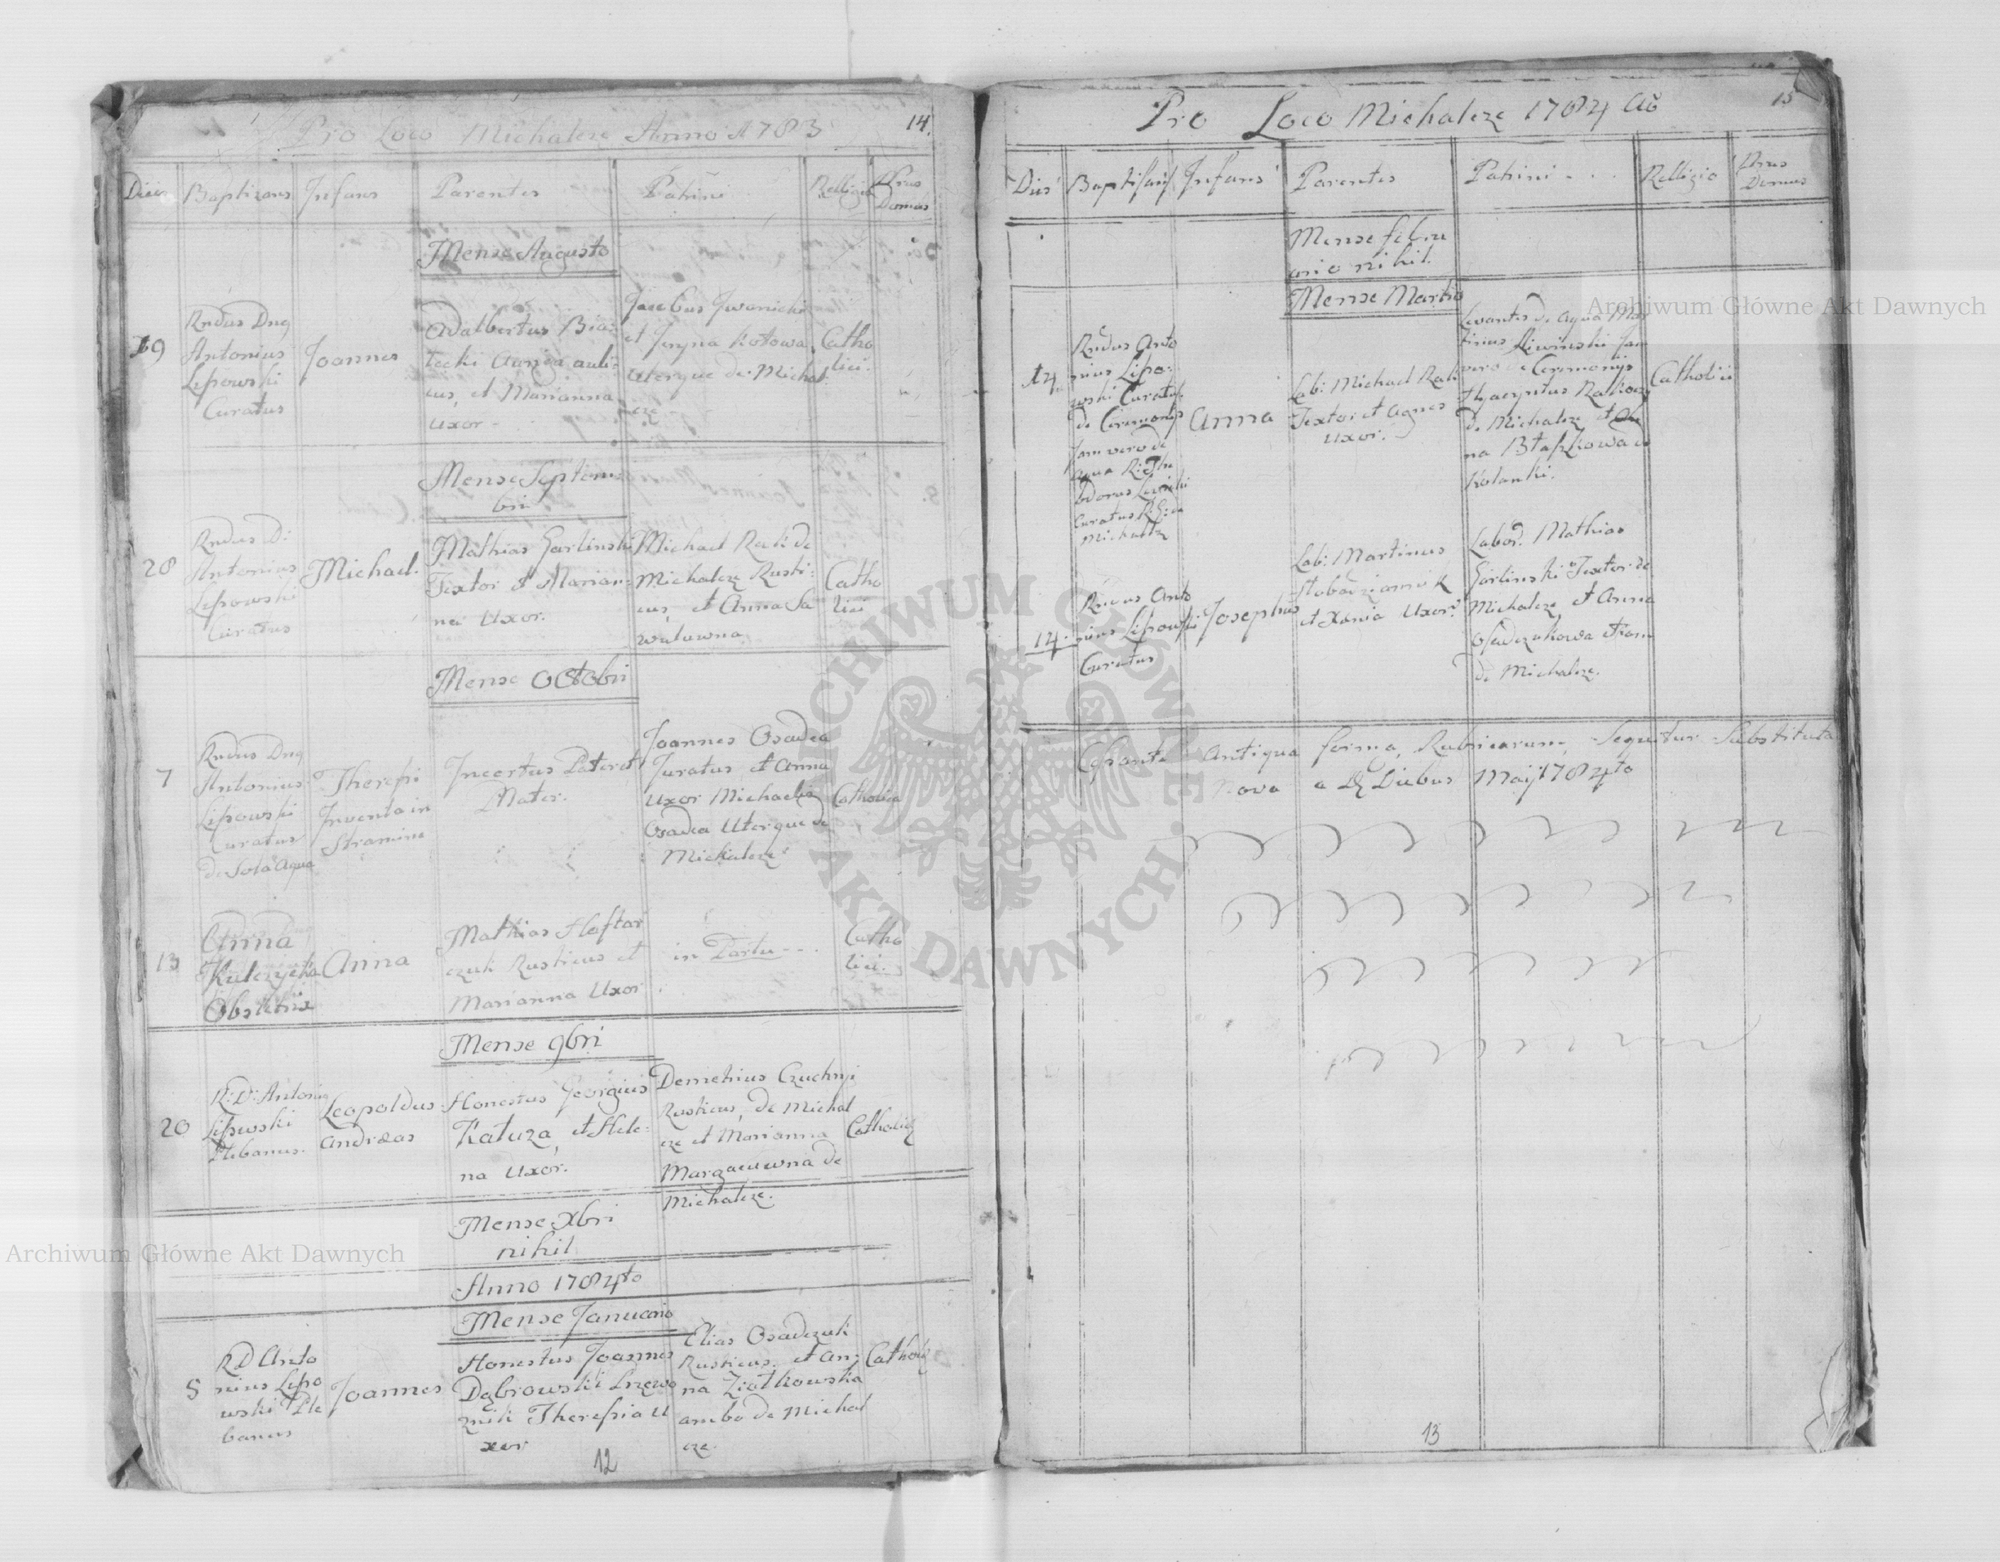 14.
Pro Loco Michalcze Anno 1783
Dies Baptizans Infans Parentes Patrini Religio Nrus Domus
Mense Augusto
19
Rndus Dnq
Antonius
Lipowski
Curatus
Joannes
Adalbertus
et Marianna
uxor
Jacobus Iwanicki
et Kotowa
uterque de Michal
cze
Catho
lici.
Mense Septem
bri
28
Rndus D:
Antonius
Lipowski
Curatus
Michael.
Mathias Garlinski
Textor et Marian
na Uxor.
Michael Rak de
Michalcze Rusti:
cus, et Anna Sa
walowna
Catho
lici
Mense Octobri
7
Rndus Dnq
Antonius
Lipowski
Curatus
de Sola Aqua
Theresi
Inventa in
Stramine
Incertus Pater et
Mater.
Joannes Osadca
Juratus, et Anna
Uxor Michaelis
Osadca Uterque de
Michalcze
Catholica
13
Anna
Kulczycka
Obstetrix
Anna
Mathias Haftar
czuk Rusticus et
Marianna Uxor
in Partu
Catho
lici.
Mense 9bri
20
R: D: Antonius
Lipowski
Plebanus.
Leopoldus
Andreas
Honestus Georgius
Katuza, et Hele:
na Uxor.
Demetrius Czuchnij
Rusticus, de Michal
cze et Marianna
de
Michalcze.
Catholici
Mense Xbri
nihil
Anno 1784to
Mense Januario
5
RD Anto
nius Lipo
wski Ple
banus
Joannes
Honestus Joannes
Dąbrowski
Theresia U
xor
Elias Osadczuk
Rusticus, et An:
na Ziołkowska
ambo de Michal
cze.
Cathol
12
15
Pro Loco Michalcze 1784 Ao
Dies Baptisans Infans Parentes Patrini . . . Relligio Nrus Domus
Mense febru
ario nihil.
Mense Martio
14
Rndus Anto
nius Lipo:
wski Curatus
de Ceremonijs
Jam vero de
aqua R: The
odorus
Curatus
Michalcze
Anna
Lab: Michael Rak
Textor et Agnes
uxor.
Levantes de Aqua Ma
Jam
vero de Ceremonijs
Hyacyntus
de Michalcze et An
na
Kolanki.
Catholici
14.
Rndus Anto
nius Lipowski
Curatus
Josephus
Lab: Martinus
et Xania Uxor
Labor. Mathias
Garlinski Textor de
Michalcze et Anna
Osadczukowa
de Michalcze.
Antiqua forma, Rubricarum, Sequitur Substituta
Nova a Diebus Maij 1784to
13
Archiwum Główne Akt Dawnych
Archiwum Główne Akt Dawnych
ARCHIWUM GŁÓWNE AKT DAWNYCH